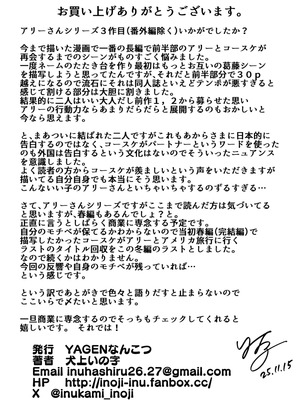 お買い上げありがとうございます。
アリーさんシリーズ3作目(番外編除く)いかがでしたか？
今まで描いた漫画で一番の長編で前半部のアリーとコースケが
再会するまでのシーンがものすごく悩みました。
一度ネームのたたき台を作り最初はもっとお互いの葛藤シーン
を描写しようと思ってたんですが、それだと前半部分で30p
越えになるので流石にそれは同人誌といえどテンポが悪すぎると
感じて割ける部分は大胆に割きました。
結果的に二人はいい大人だし前作1,2から募らせた思い
アリーの行動力ならあまりだらだらと展開するのもおかしいと
今なら思えます。
と、まあついに結ばれた二人ですがこれもあからさまに日本的に
告白するのではなく、コースケがパートナーというワードを使った
のも外国は告白するという文化はないのでそういったニュアンス
を意識しました。
よく読者の方からコースケが羨ましいという声をいただきますが
描いてる自分自身でも本当にそう思います。
こんないい子のアリーさんといちゃいちゃするのずるすぎる…
さて、アリーさんシリーズですがここまで読んだ方は気づいてる
と思いますが、春編もあるんでしょ？と。
正直に言うとしばらく商業に専念する予定です。
自分のモチベが保てるかわからないので当初春編(完結編)で
描写したかったコースケがアリーとアメリカ旅行に行く
ラストのタイトル回収をこの冬編のラストとしました。
なので続くかはわかりません。
今回の反響や自身のモチベが残っていれば…
という感じです。
という訳であとがきで色々と語りだすと止まらないので
ここいらで〆たいと思います。
一旦商業に専念するのでそっちもチェックしてくれると
嬉しいです。それでは！
発行 YAGENなんこつ
著者 犬上いの字
Email inuhashiru26.27@gmail.com
HP http://inoji-inu.fanbox.cc/
X @inukami_inoji
25.11.15